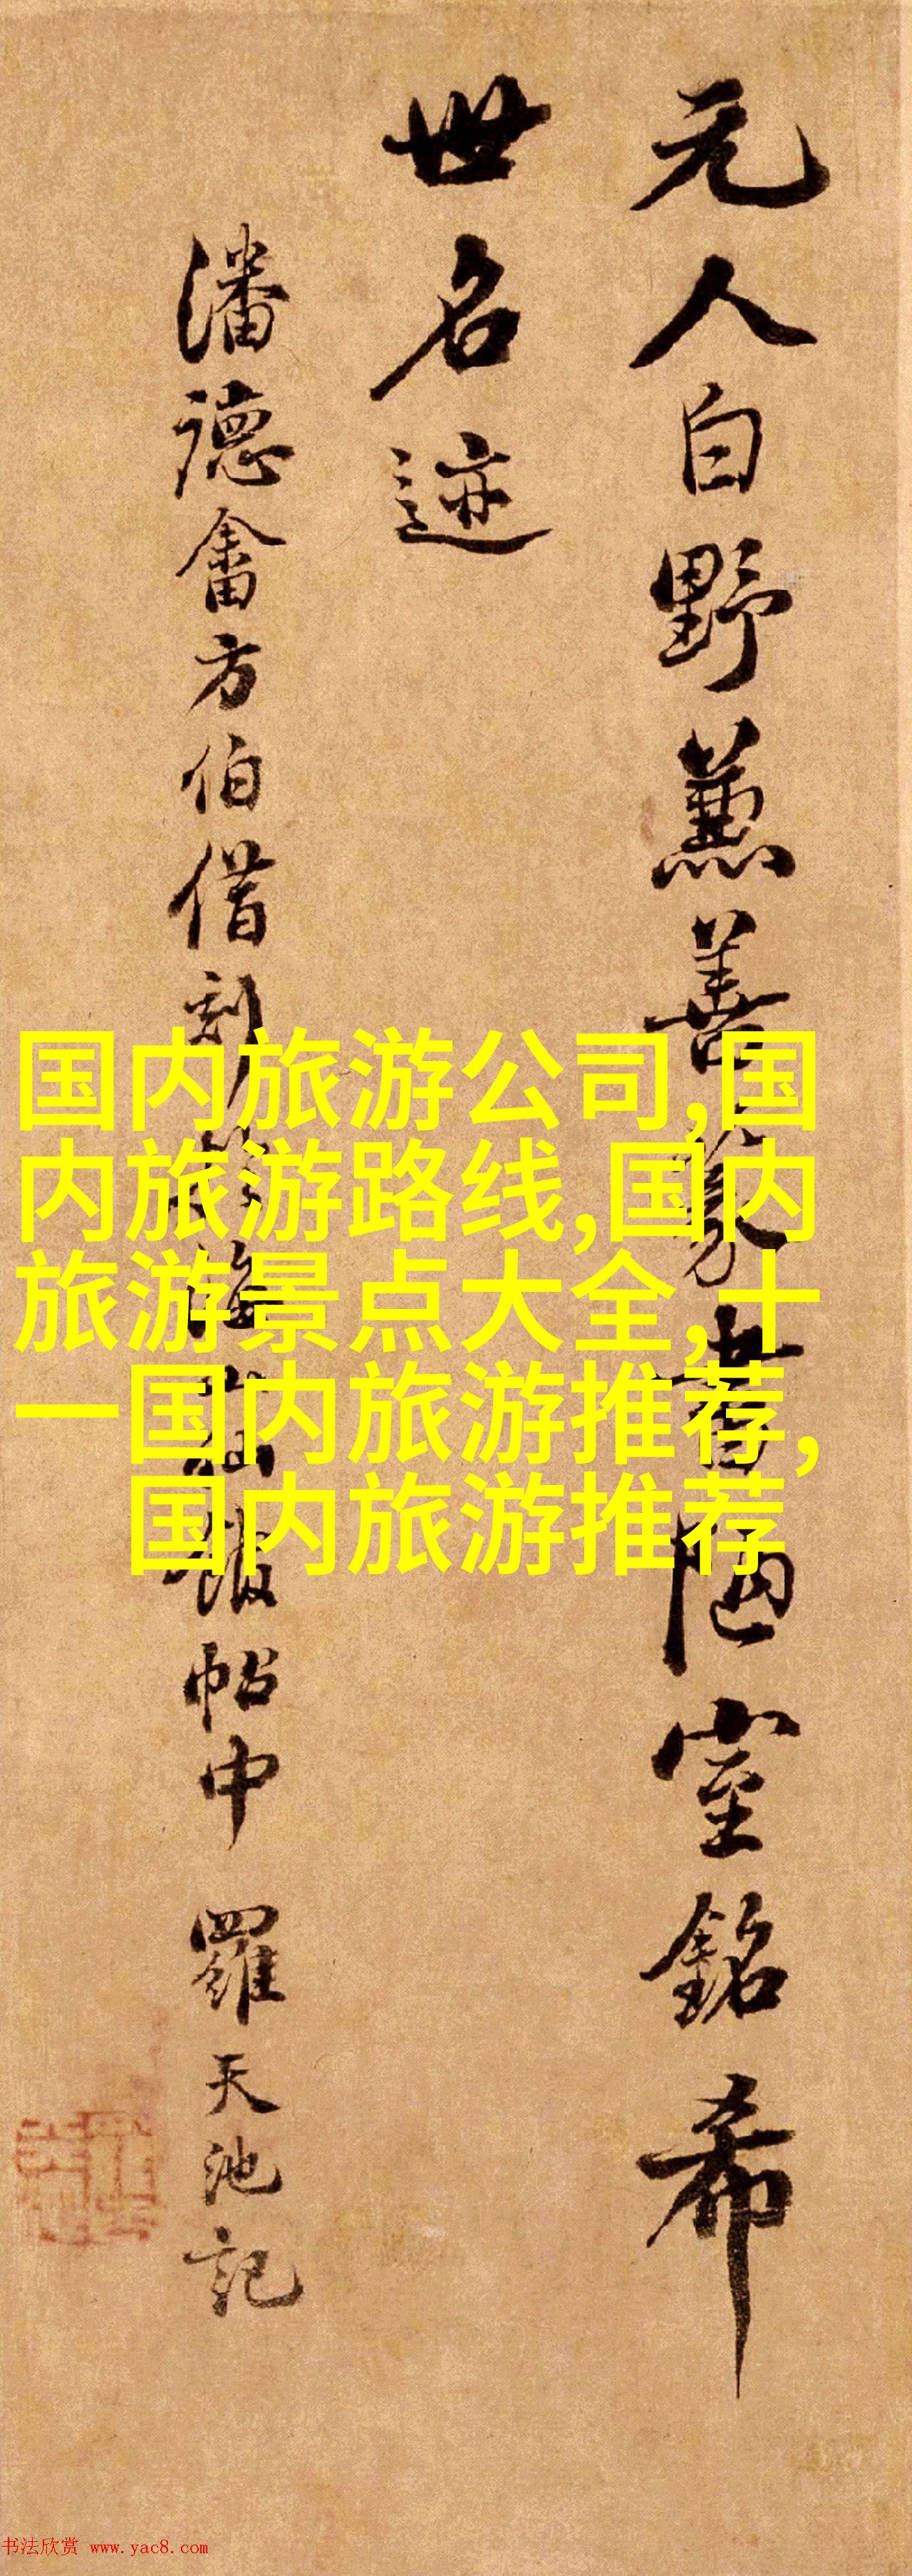 元人白野兼善篆書陋室銘希
世名迹
潘德畬方伯借刻海山仙館帖中 羅天池記
国内旅游公司,国
内旅游路线,国内
旅游景点大全,十
一国内旅游推荐,
国内旅游推荐
书法欣赏 www.yac8.com